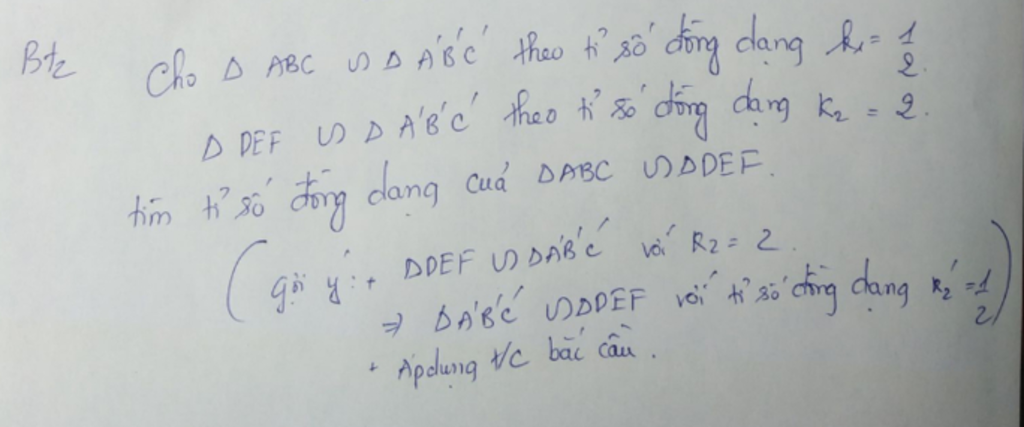 Bt2 Cho Δ ABC ∽ Δ A'B'C' theo tỉ số đồng dạng k₁ = 1/2.
Δ DEF ∽ Δ A'B'C' theo tỉ số đồng dạng K₂ = 2.
tìm tỉ số đồng dạng cuả ΔABC ∽ ΔDEF.
(gợi ý: + ΔDEF ∽ ΔA'B'C' với K₂ = 2.
⇒ ΔA'B'C' ∽ ΔDEF với tỉ số đồng dạng k₂' = 1/2)
+ Áp dụng t/c bắc cầu.